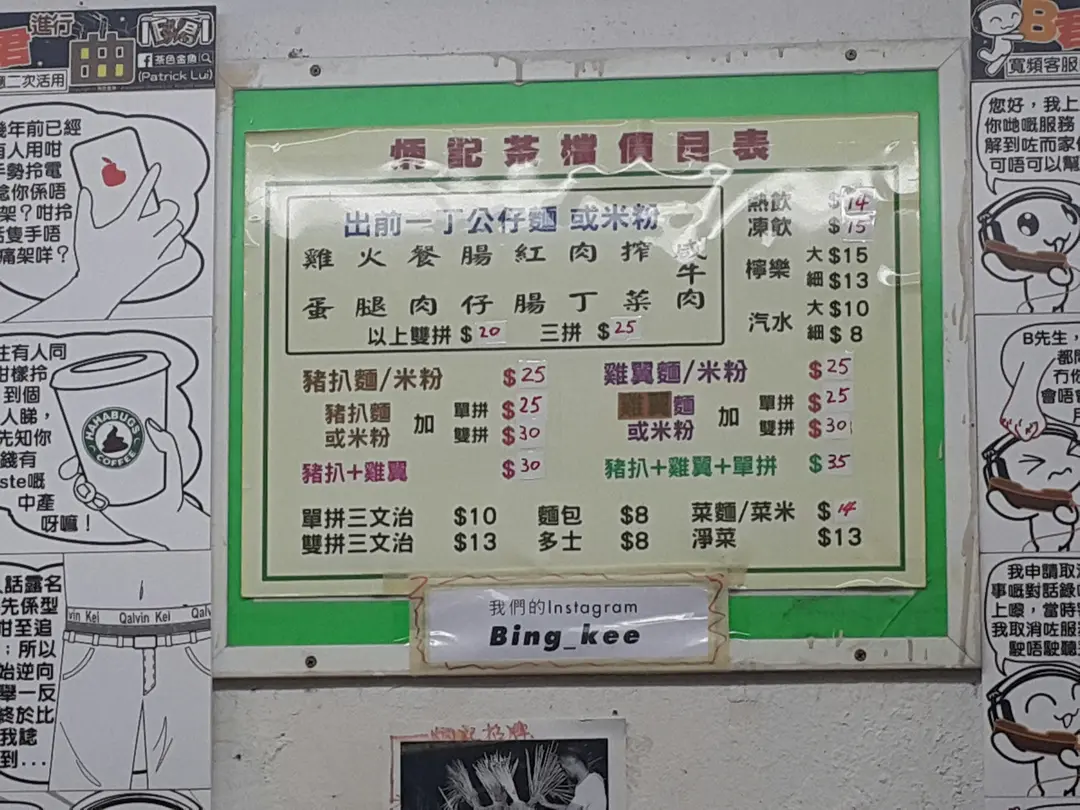 進行
君
茶色金魚
(Patrick Lui)
二次活用
幾年前已經
有人用咁
手勢拎電
係唔
架?咁拎
隻手唔
痛架咩?
有人同
咁樣拎
到個
人睇,
先知你
錢有
ste嘅
中產
呀嘛!
HAHABUCS
COFFEE
話露名
先係型
咁至追
;所以
始逆向
舉一反
終於比
我諗
到...
Qalvin Kei
炳記茶檔價目表
出前一丁公仔麵 或米粉
雞蛋 火腿 餐肉 腸仔 紅腸 肉丁 搾菜 咸牛肉
以上雙拼 $20 三拼 $25
熱飲 $14
凍飲 $15
檸樂 大 $15
細 $13
汽水 大 $10
細 $8
豬扒麵/米粉 $25
豬扒麵或米粉 加 單拼 $25
雙拼 $30
豬扒+雞翼 $30
雞翼麵/米粉 $25
雞翼麵或米粉 加 單拼 $25
雙拼 $30
豬扒+雞翼+單拼 $35
單拼三文治 $10 麵包 $8 菜麵/菜米 $14
雙拼三文治 $13 多士 $8 淨菜 $13
我們的Instagram
Bing_kee
B君
寬頻客服
您好,我上
你哋嘅服務
解到咗而家
可唔可以幫
B先生,
都
冇你
會唔
我申請取消
事嘅對話錄
上嚟,當時
我取消咗服
駛唔駛聽